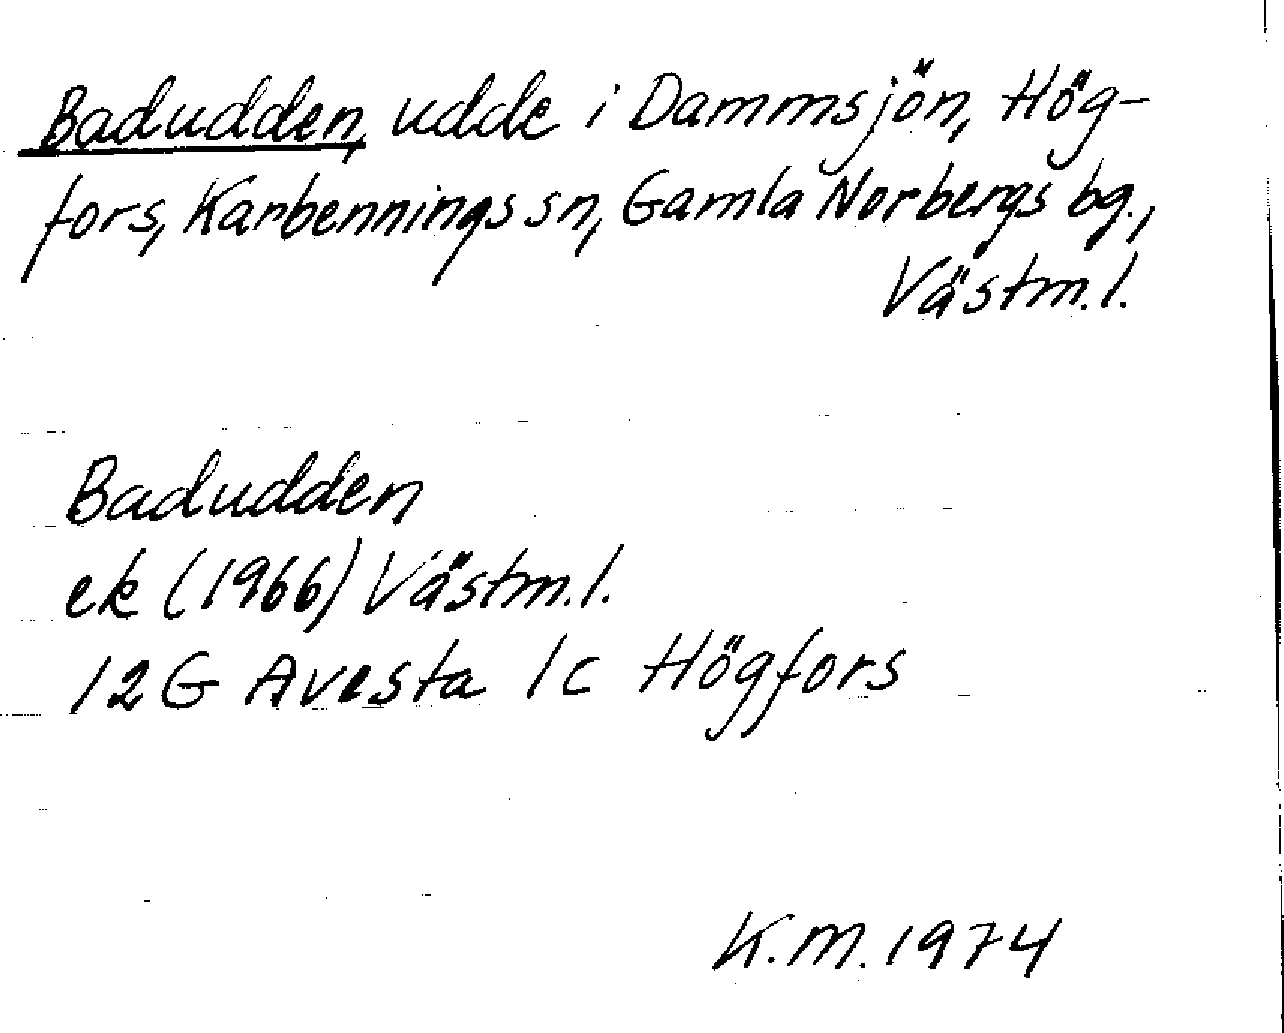 Badudden, udde i Dammsjön, Hög-
fors, Karbennings sn, Gamla Norbergs bg.,
Västm.l.
Badudden
ek (1966) Västm.l.
12G Avesta 1c Högfors
K.M. 1974